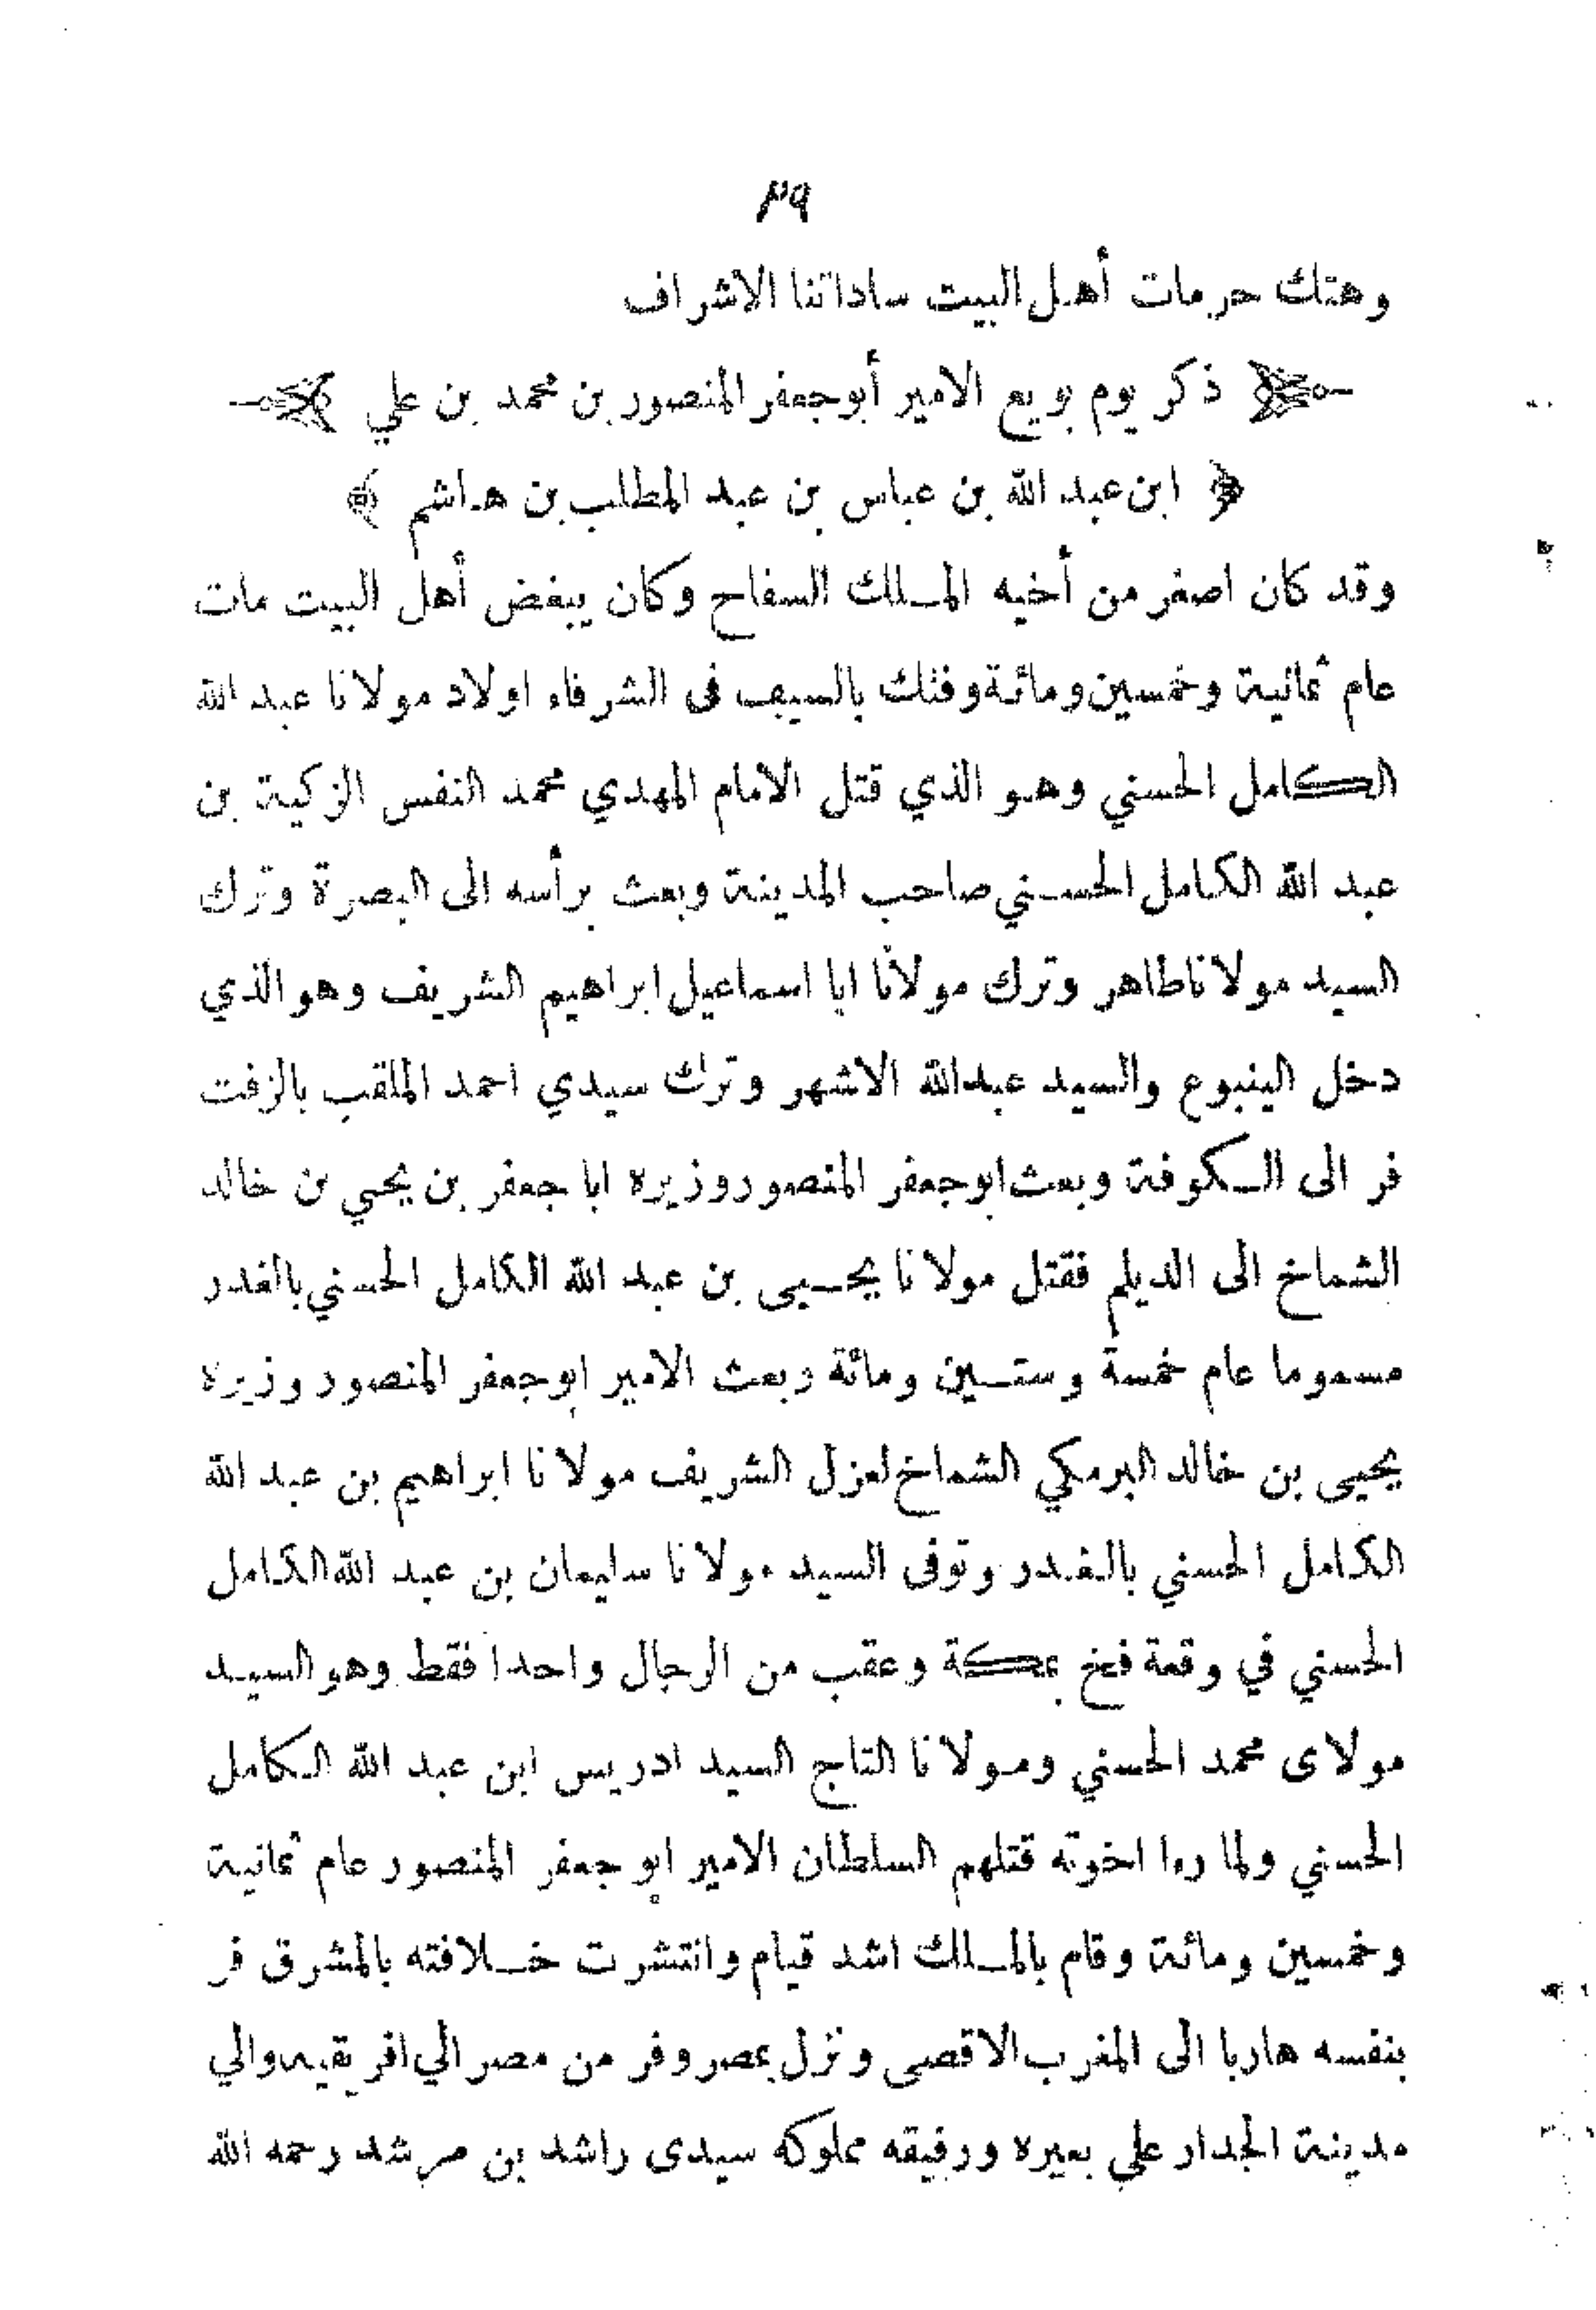 ٣٩
وهتك حرمات أهل البيت ساداتنا الاشراف
ذكر يوم بويع الامير أبو جعفر المنصور بن محمد بن علي
﴿ ابن عبد الله بن عباس بن عبد المطلب بن هاشم ﴾
وقد كان اصغر من أخيه الملك السفاح وكان يبغض أهل البيت مات
عام ثمانية وخمسين ومائة وفتك بالسيف فى الشرفاء اولاد مولانا عبد الله
الكامل الحسني وهو الذي قتل الامام المهدي محمد النفس الزكية بن
عبد الله الكامل الحسني صاحب المدينة وبعث برأسه الى البصرة وترك
السيد مولانا طاهر وترك مولانا ابا اسماعيل ابراهيم الشريف وهو الذي
دخل الينبوع والسيد عبد الله الاشهر وترك سيدي احمد الملقب بالزفت
فر الى الكوفة وبعث ابو جعفر المنصور وزيره ابا جعفر بن يحيي بن خالد
الشماخ الى الديلم فقتل مولانا يحيى بن عبد الله الكامل الحسني بالغدر
مسموما عام خمسة وستين ومائة وبعث الامير ابو جعفر المنصور وزيره
يحيى بن خالد البرمكي الشماخ لعزل الشريف مولانا ابراهيم بن عبد الله
الكامل الحسني بالغدر وتوفى السيد مولانا سليمان بن عبد الله الكامل
الحسني في وقعة فخ بمكة وعقب من الرجال واحدا فقط وهو السيد
مولاى محمد الحسني ومولانا التاج السيد ادريس ابن عبد الله الكامل
الحسني ولما رءا اخوته قتلهم السلطان الامير ابو جعفر المنصور عام ثمانية
وخمسين ومائة وقام بالملك اشد قيام وانتشرت خلافته بالمشرق فر
بنفسه هاربا الى المغرب الاقصى ونزل بمصر وفر من مصر الي افريقيه والي
مدينة الجدار علي بعيره ورفيقه مملوكه سيدى راشد بن مرشد رحمه الله